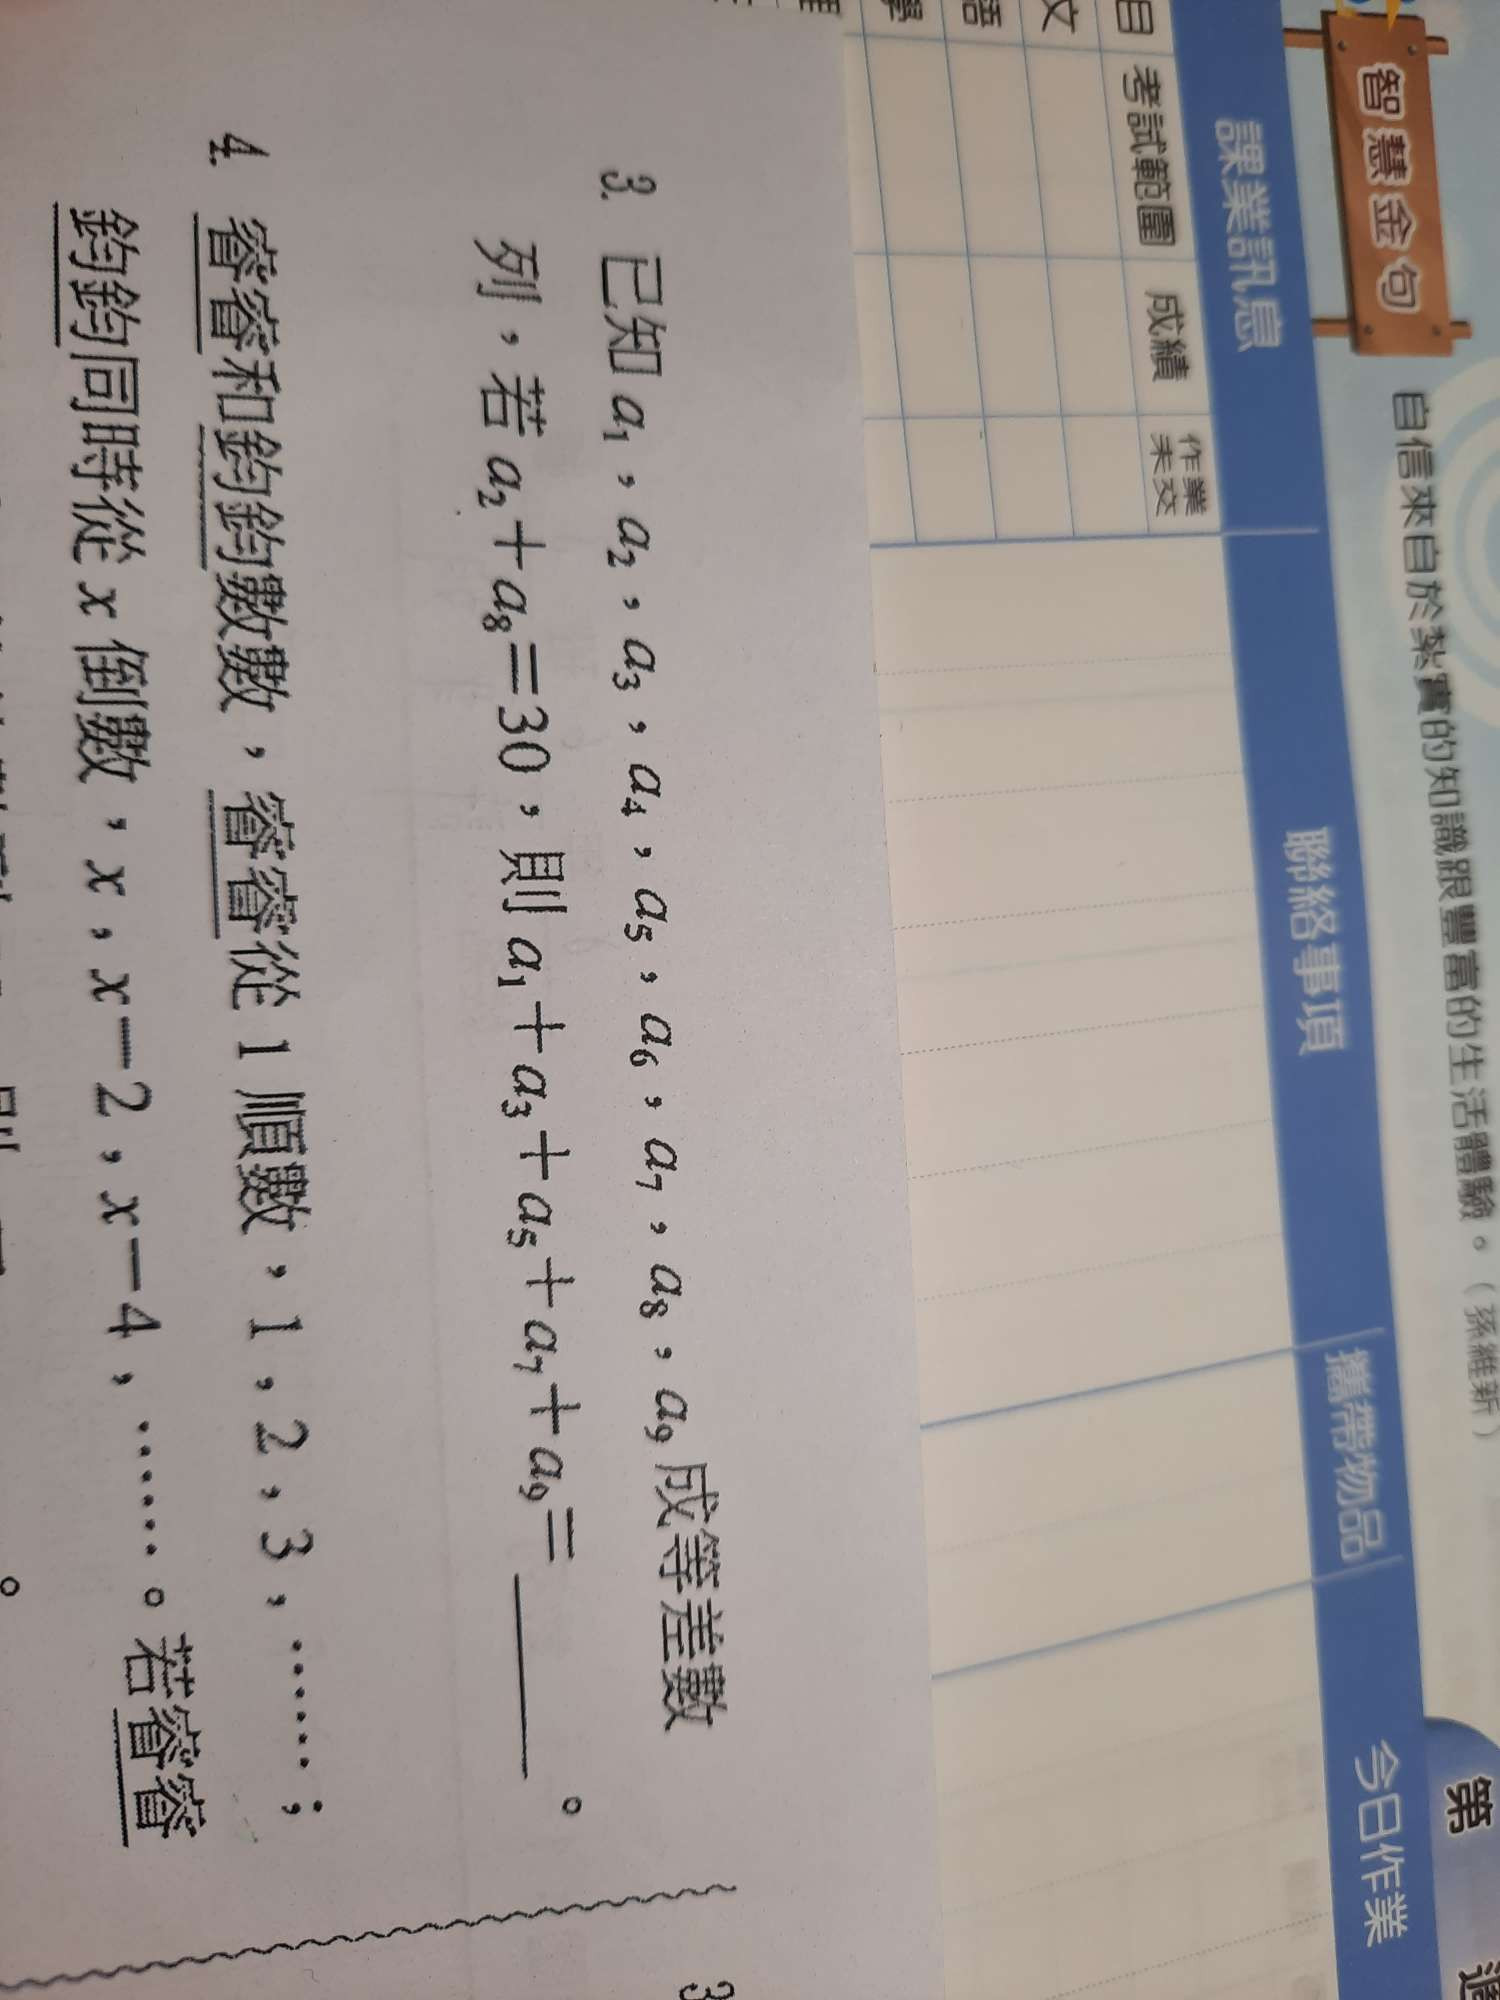 智慧金句
自信來自於紮實的知識跟豐富的生活體驗。（孫維新）
第
週
課業訊息
聯絡事項
攜帶物品
今日作業
目
考試範圍
成績
作業
未交
文
語
學
3. 已知 a₁，a₂，a₃，a₄，a₅，a₆，a₇，a₈，a₉ 成等差數
列，若 a₂＋a₈＝30，則 a₁＋a₃＋a₅＋a₇＋a₉＝______。
4. 睿睿和鈞鈞數數，睿睿從 1 順數，1，2，3，……；
鈞鈞同時從 x 倒數，x，x－2，x－4，……。若睿睿
3